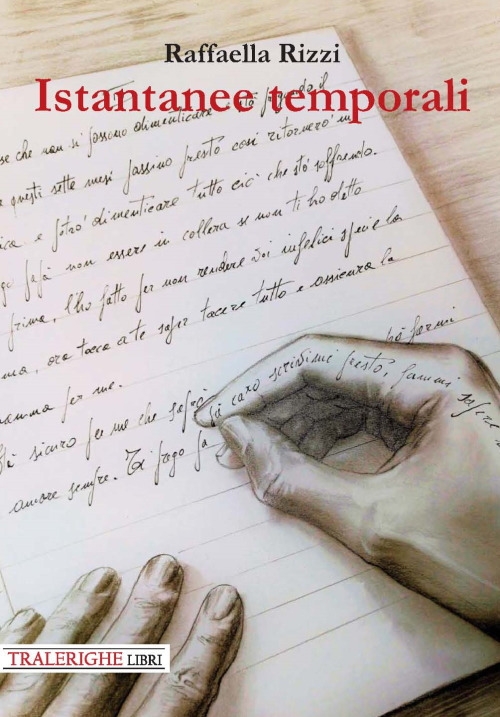 Raffaella Rizzi
Istantanee temporali
se che non si possono dimenticare
questi sette mesi passino presto così ritornerò in
e potrò dimenticare tutto ciò che sto soffrendo.
papà non essere in collera se non ti ho detto
prima, l'ho fatto per non rendere voi infelici specie la
ma, ora tocca a te saper tacere tutto e assicura la
mamma per me.
sicuro per me che saprò
caro scrivimi presto, fammi sapere
amore sempre. Ti prego
TRALERIGHE LIBRI